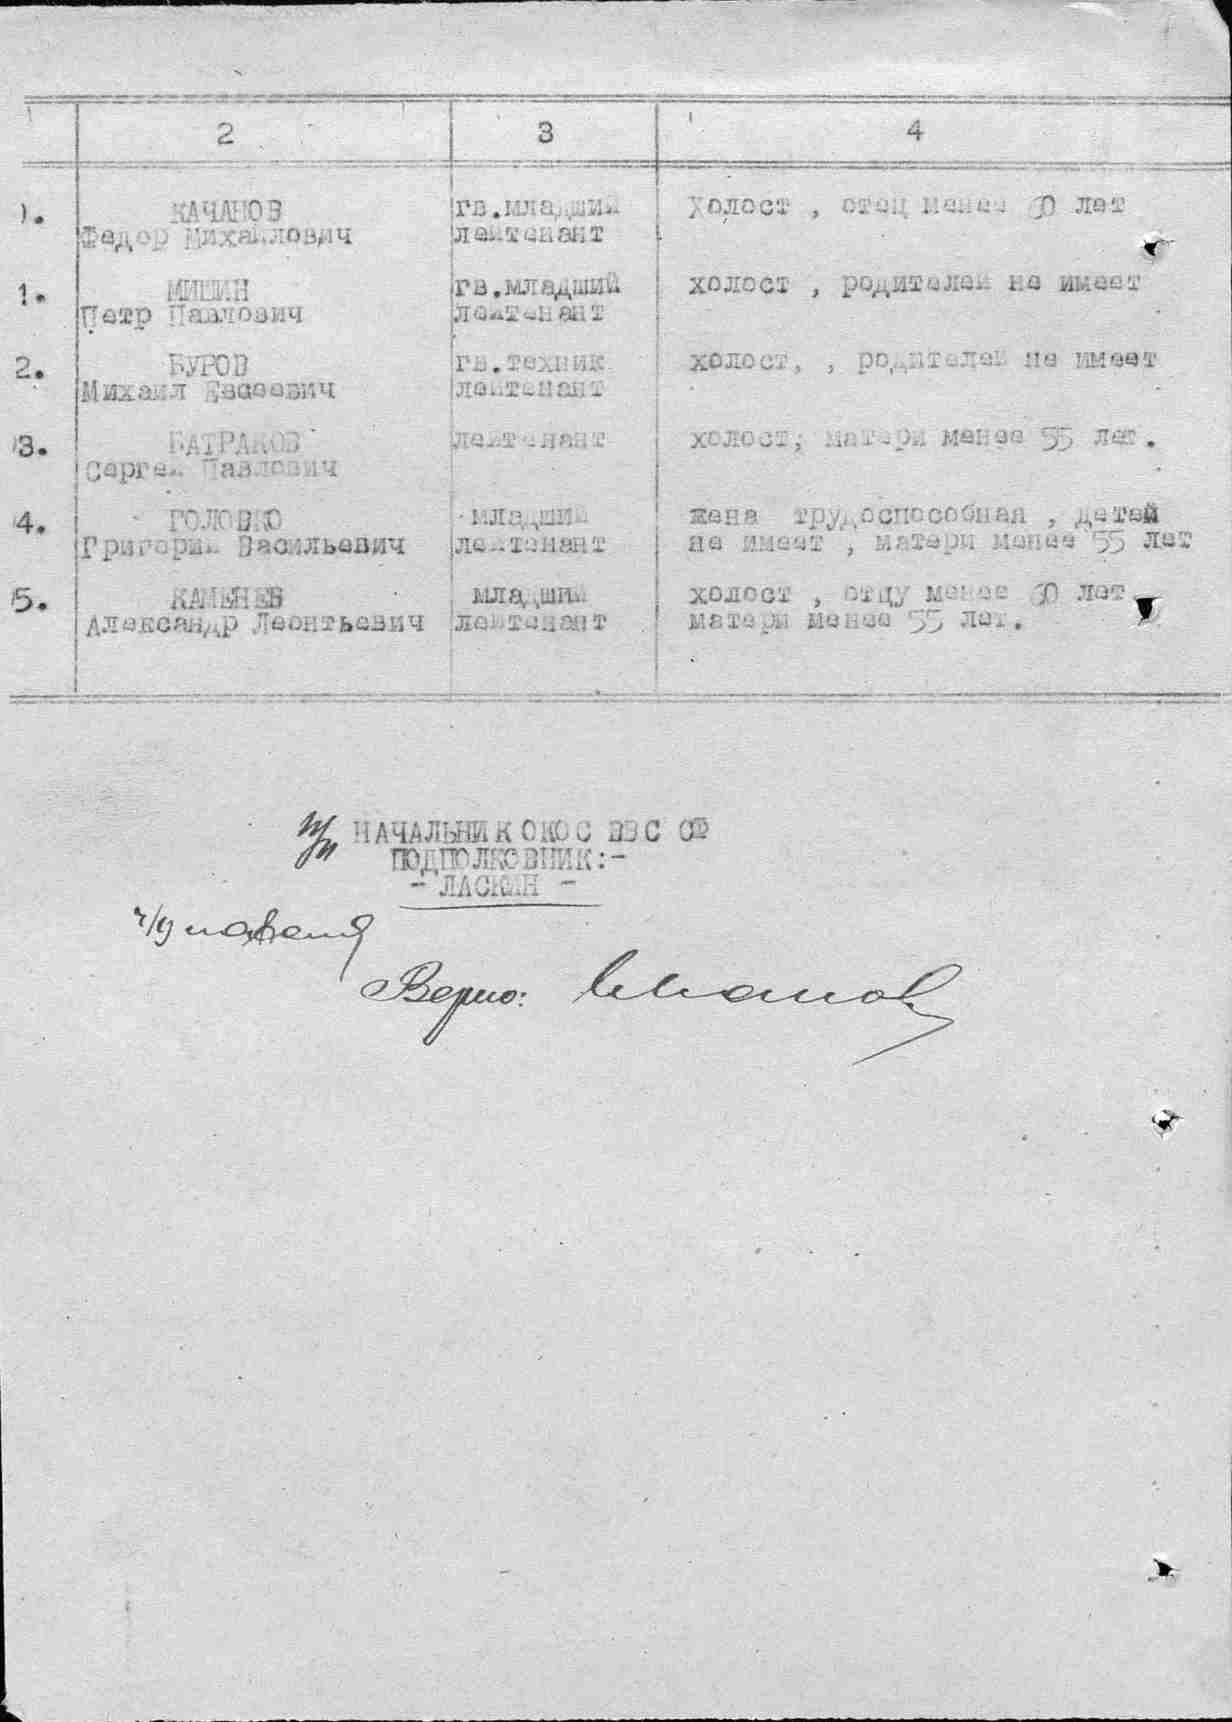 2 3 4
). КАЧАНОВ гв.младший Холост , отец менее 60 лет
Федор Михайлович лейтенант
1. МИШИН гв.младший холост , родителей не имеет
Петр Павлович лейтенант
2. БУРОВ гв.техник холост, , родителей не имеет
Михаил Евсеевич лейтенант
3. БАТРАКОВ лейтенант холост, матери менее 55 лет.
Сергей Павлович
4. ГОЛОВКО младший жена трудоспособная , детей
Григорий Васильевич лейтенант не имеет , матери менее 55 лет
5. КАМЕНЕВ младший холост , отцу менее 60 лет
Александр Леонтьевич лейтенант матери менее 55 лет.
п/п НАЧАЛЬНИК ОКОС ВВС СФ
ПОДПОЛКОВНИК:-
- ЛАСКИН -
Верно: